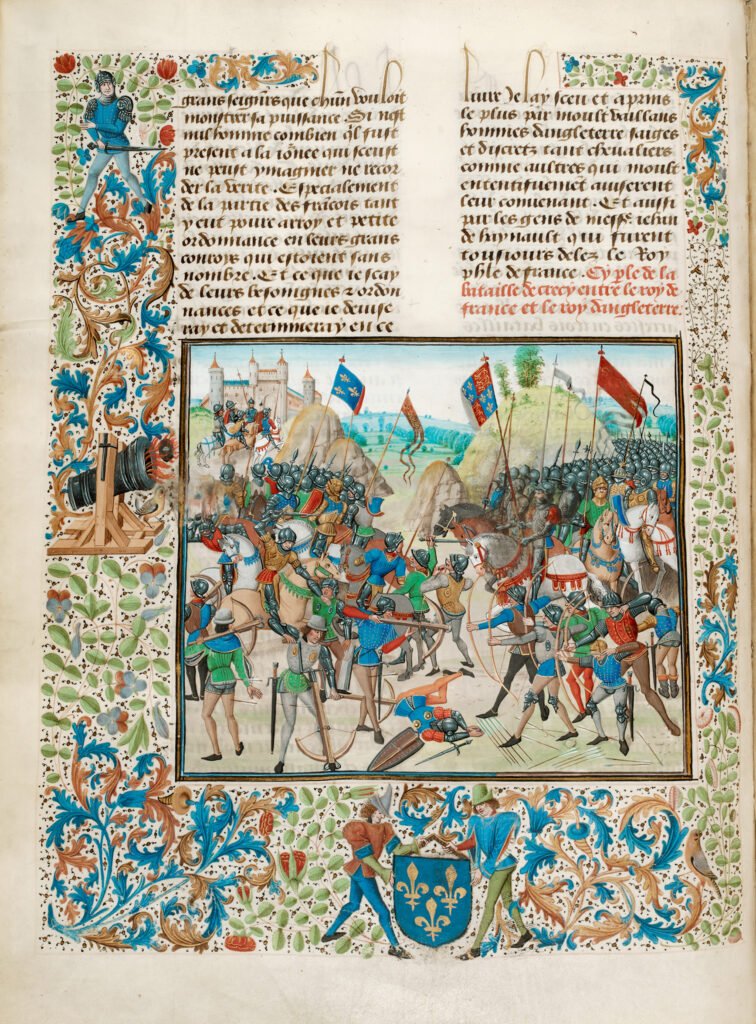 grans seigñrs que chũn vouloit
monstrer sa puissance. Si nest
nul homme combien ql fust
present a la iõnee qui sceust
ne peust ymaginer ne recor
der la verite. Especialement
de la partie des frãcois tant
y eut poure arroy et petite
ordonnance en leurs grans
conrois qui estoient sans
nombre. Et ce que ie scay
de leurs besoingnes & ordon
nances et ce que ie deuise
ray et determineray en ce
liure Je lay sceu et aprins
le plus par moult vaillans
hommes dangleterre saiges
et discretz tant cheualiers
comme aultres qui moult
ententifuement auiserent
leur conuenant. Et aussi
par les gens de messẽ iehan
de haynault qui furent
tousiours delez le Roy
phle de france. Cy ple de la
bataille de crecy entre le roy de
france et le roy dangleterre.